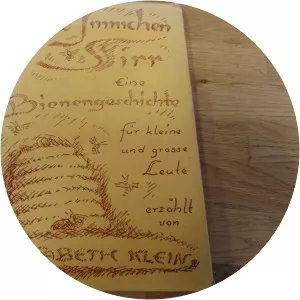 Immchen
Sirr
Eine
Bienengeschichte
für kleine
und grosse
Leute
erzählt
von
BETH KLEIN